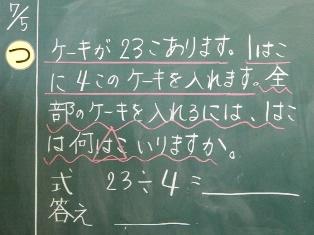 7/5
つ
ケーキが23こあります。1はこ
に4このケーキを入れます。全
部のケーキを入れるには、1はこ
は何はこいりますか。
式 23÷4=
答え